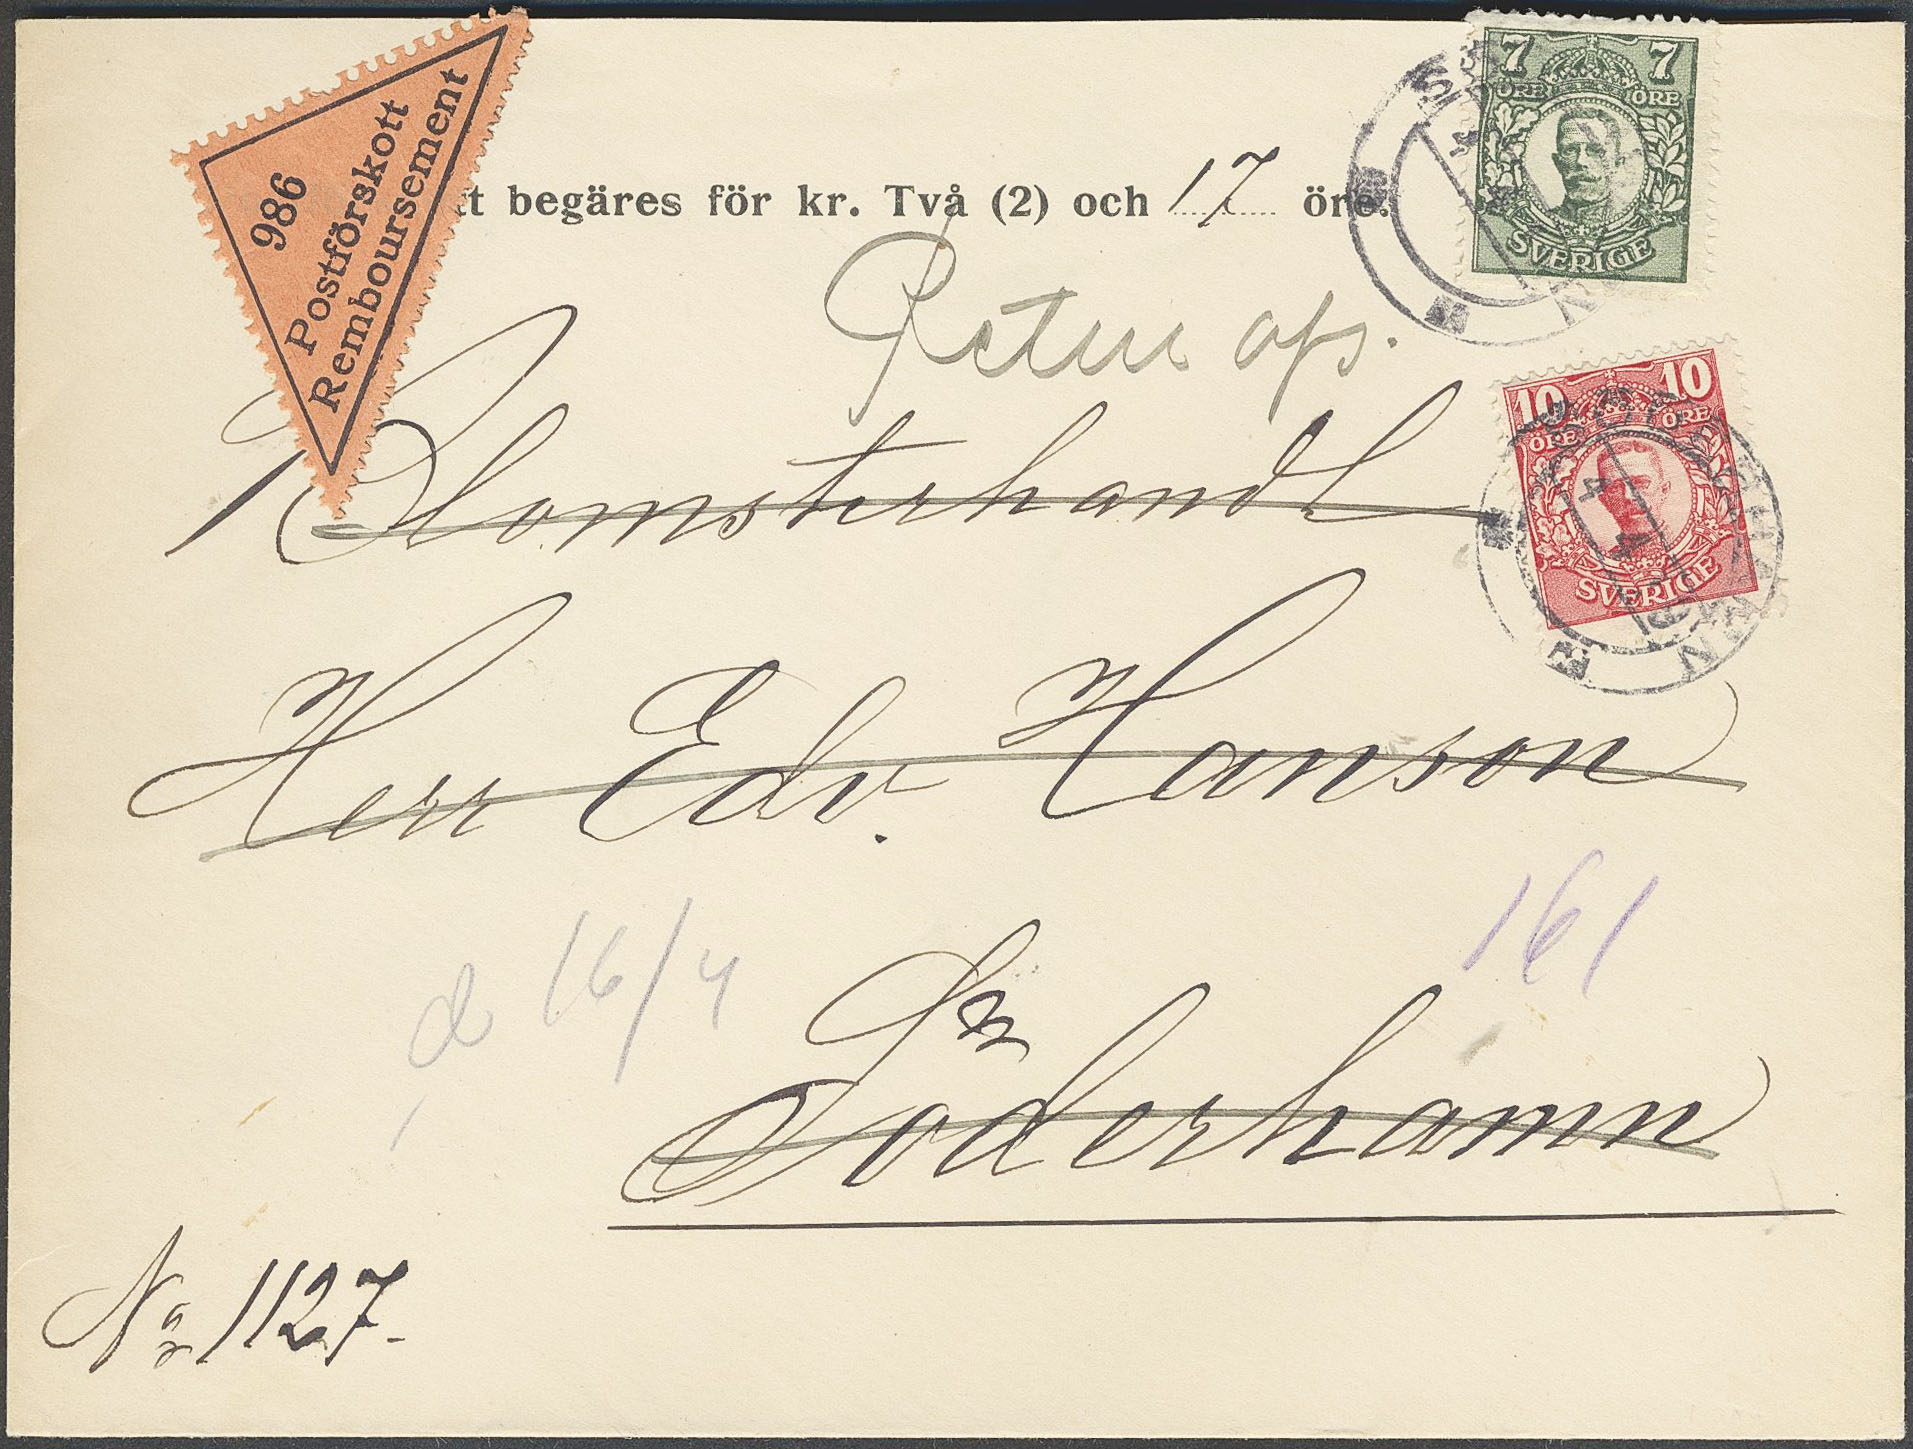 986
Postförskott
Remboursement
tt begäres för kr. Två (2) och 17 öre.
7 7
ÖRE ÖRE
SVERIGE
Retur afs.
10 10
ÖRE ÖRE
SVERIGE
Blomsterhandl
Herr Edv. Hanson
161
16/4
Söderhamn
No 1127.